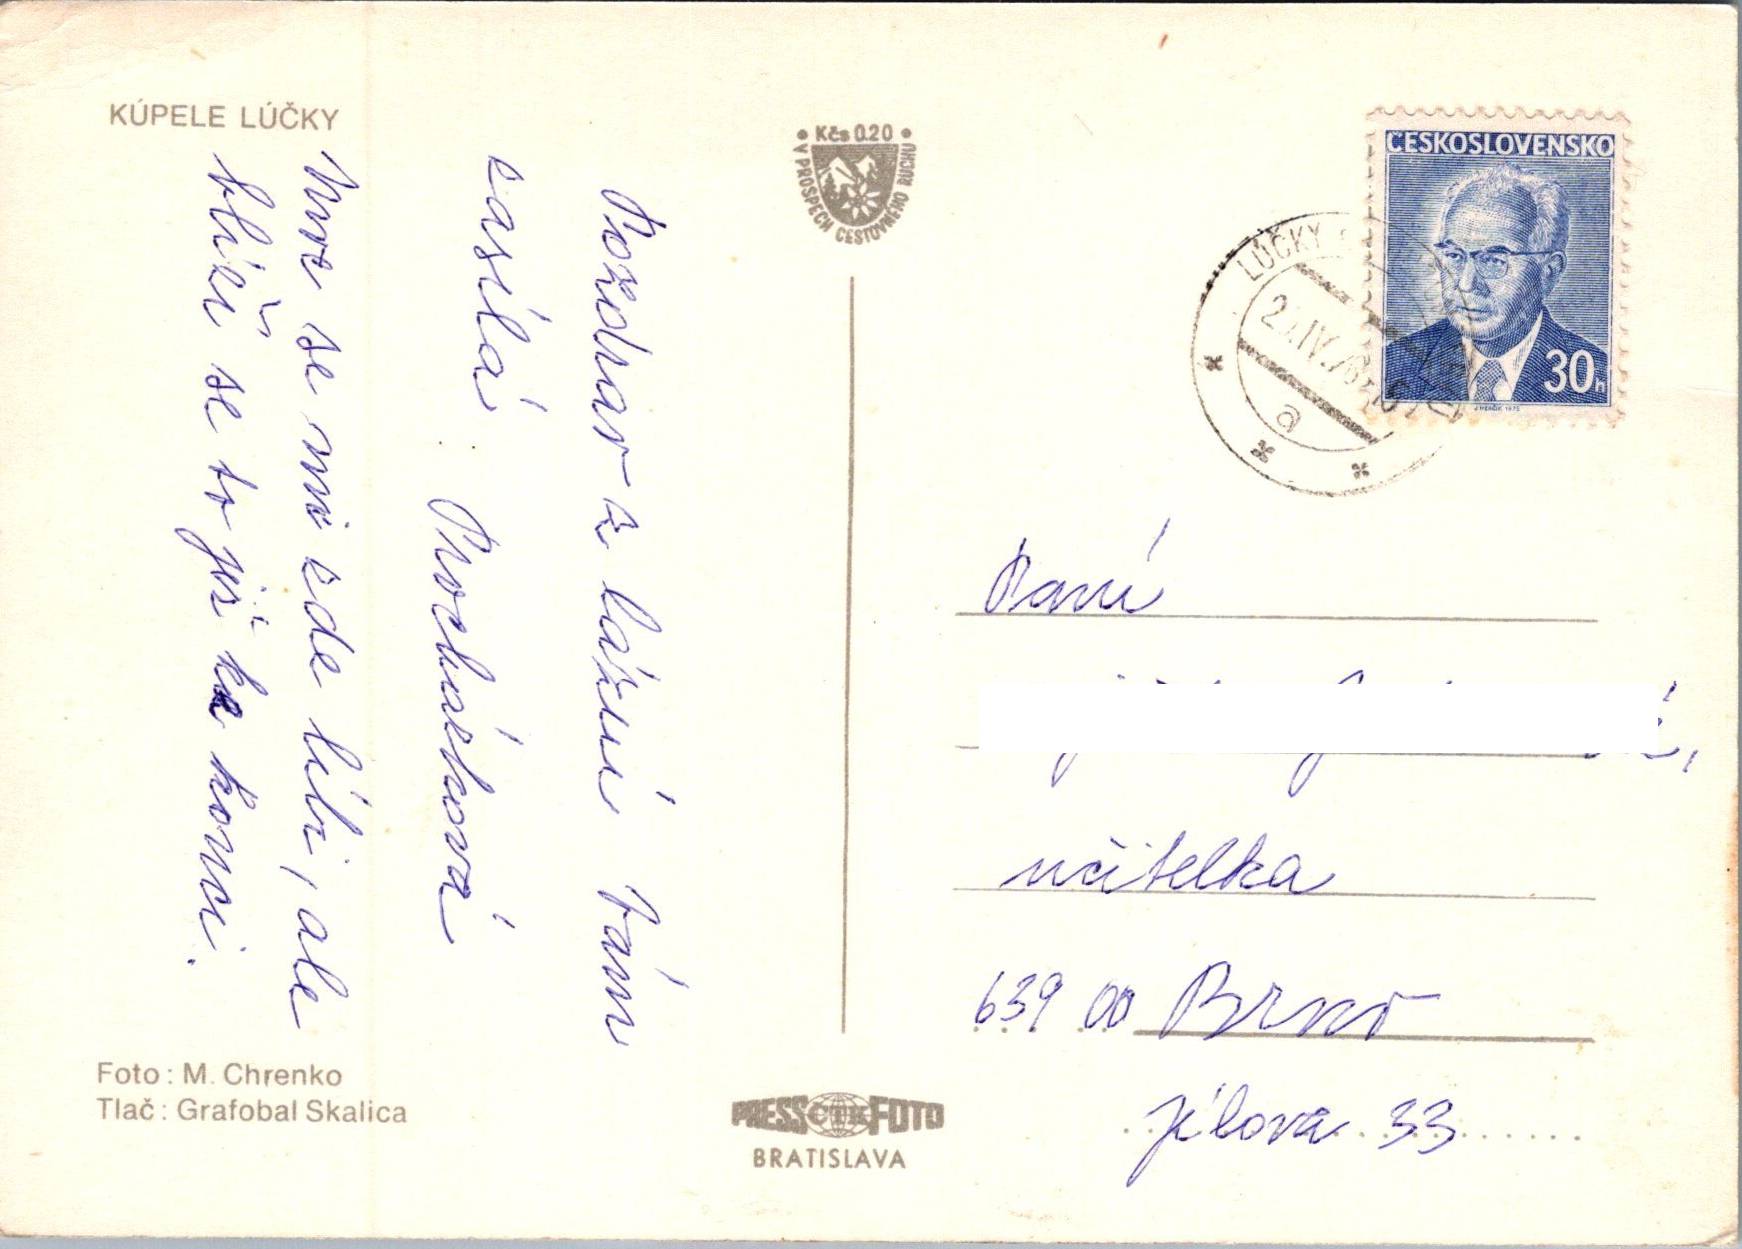 KÚPELE LÚČKY
Pozdrav z lázní Vám
zasílá Procházková
Moc se mi zde líbí, ale
blíží se to již ke konci.
Foto: M. Chrenko
Tlač: Grafobal Skalica
• Kčs 0.20 •
V PROSPECH CESTOVNÉHO RUCHU
PRESS ČTK FOTO
BRATISLAVA
ČESKOSLOVENSKO
30h
J. HERČÍK 1975
LÚČKY
IV.76
a
Paní
učitelka
639 00 Brno
Jílova 33